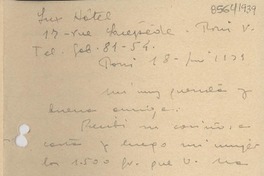 8564/1939
Lux Hôtel
17 - rue - Paris V.
Tel. 81-54.
Paris 18 - 1939
Mi muy querida y
buena amiga:
Recibí su cariñosa
carta y luego mi mujer
los 1.500 fr. que V. ha